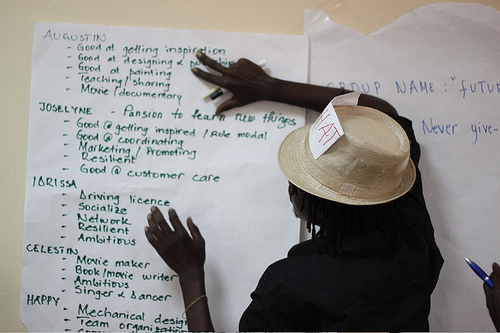 AUGUSTIN
- Good at getting inspiration
- Good at designing &
- Good at painting
- Teaching / sharing
- Movie / documentary
JOSELYNE - Pansion to learn new things
- Good @ getting inspired / Role modal
- Good @ coordinating
- Marketing / Promoting
- Resilient
- Good @ customer care
IDRISSA
- Driving licence
- Socialize
- Network
- Resilient
- Ambitious
CELESTIN
- Movie maker
- Book/movie writer
- Ambitious
- Singer & dancer
HAPPY
- Mechanical design
- Team organization
HAT
GROUP NAME: "FUTU
Never give